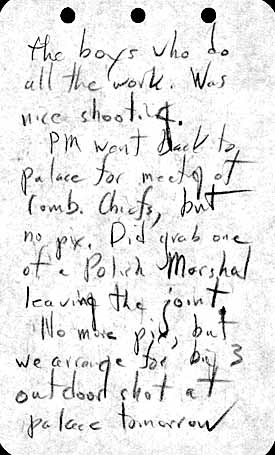 the boys who do
all the work. Was
nice shooting.
PM went back to
palace for meetg of
Comb. Chiefs, but
no pix. Did grab one
of a Polish Marshal
leaving the joint.
No more pix, but
we arrange for big 3
outdoor shot at
palace tomorrow